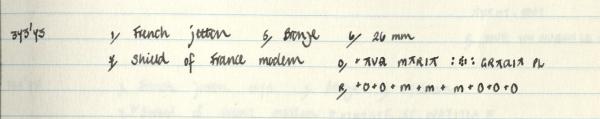 343'43 1, French jetton 5, Bronze 6, 26 mm
7, Shield of France modern O, +AVE MARIA :E: GRACIA PL
R, +O+O+m+m+m+O+O+O